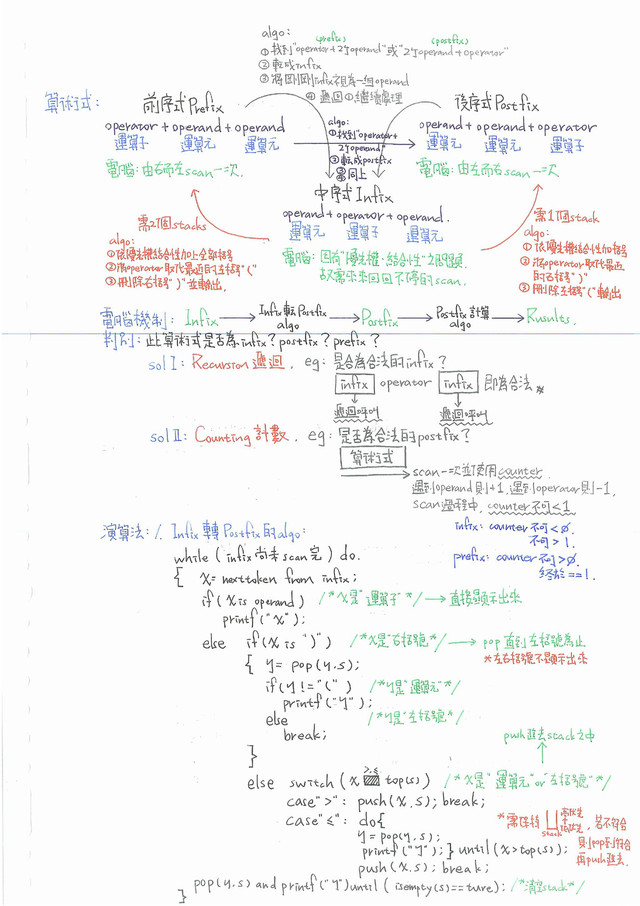 algo:
(prefix) (postfix)
① 找到"operator+2個operand"或"2個operand+operator"
② 轉成infix
③ 將剛剛infix視為一個operand
④ 遞迴①繼續處理
算術式: 前序式Prefix 後序式Postfix
operator + operand + operand operand + operand + operator
運算子 運算元 運算元 運算元 運算元 運算子
電腦: 由右而左scan一次. 電腦: 由左而右scan一次
algo:
①找到"operator+
2個operand"
②轉成postfix
同上
中序式Infix
operand + operator + operand.
運算元 運算子 運算元
電腦: 因有"優先權、結合性"之問題,
故需來來回回不停的scan.
需2個stacks
algo:
①依優先權結合性加上全部括號
②將operator取代最近的左括號"("
③刪除右括號")"並輸出.
需1個stack
algo:
①依優先權結合性加括號
②將operator取代最近
的右括號")"
③刪除左括號"("輸出
電腦機制: Infix → Infix轉Postfix algo → Postfix → Postfix計算 algo → Rusults.
判別: 此算術式是否為infix? postfix? prefix?
sol I: Recursion遞迴. eg: 是否為合法的infix?
infix operator infix 即為合法*
遞迴呼叫 遞迴呼叫
sol II: Counting計數. eg: 是否為合法的postfix?
算術式
scan一次並使用counter.
遇到operand則+1, 遇到operator則-1,
scan過程中, counter不可<1
infix: counter不可<0.
不可>1.
prefix: counter不可>0.
終於==1.
演算法: 1. Infix轉Postfix的algo:
while (infix尚未scan完) do.
{ X= nexttoken from infix;
if(X is operand) /*X是"運算子"*/ → 直接顯示出來
printf("X");
else if(X is ")") /*X是"右括號*/ → pop直到左括號為止
*左右括號不顯示出來
{ y= pop(y,s);
if(y!="(") /*y是"運算元"*/
printf("y");
else /*y是"左括號*/
break;
}
push進去stack之中
else switch (X >,≤ top(s)) /*X是"運算元"or"左括號"*/
case">": push(X,s); break;
case"≤": do{
y=pop(y,s);
printf("y"); } until(X>top(s));
push(X,s); break;
*需保持 stack 高優先 低優先, 若不符合
則pop到符合
再push進去.
pop(y,s) and printf("y") until (isempty(s)==ture); /*清空stack*/
}